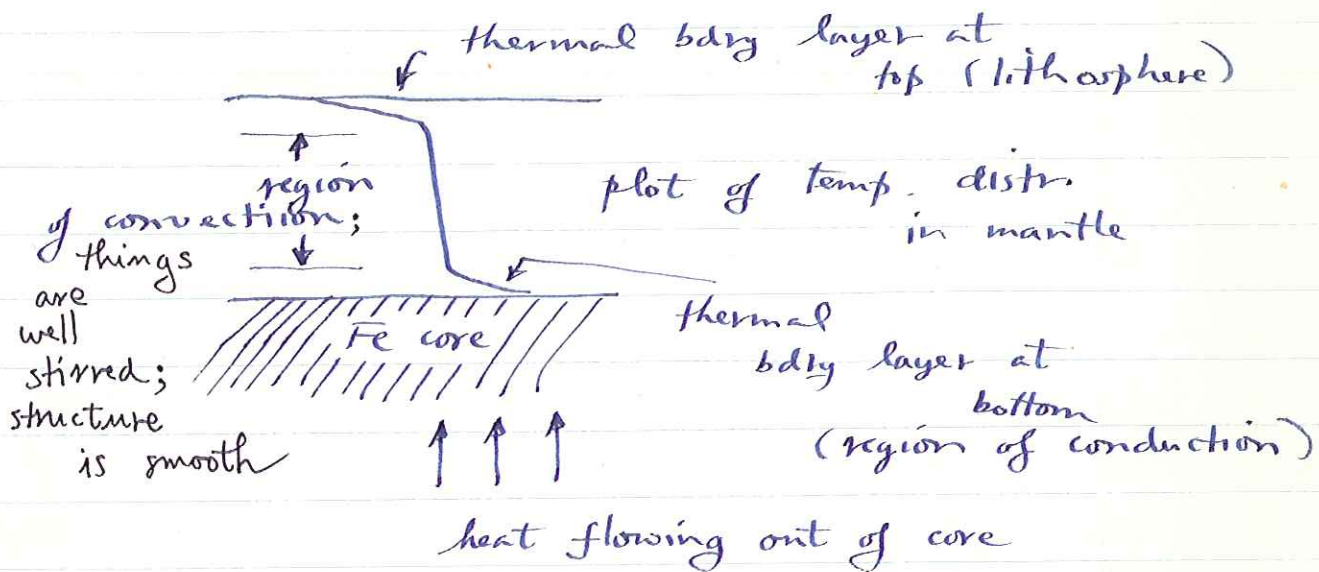 thermal bdry layer at
top (lithosphere)
region
of convection;
things
are
well
stirred;
structure
is smooth
plot of temp. distr.
in mantle
Fe core
thermal
bdry layer at
bottom
(region of conduction)
heat flowing out of core